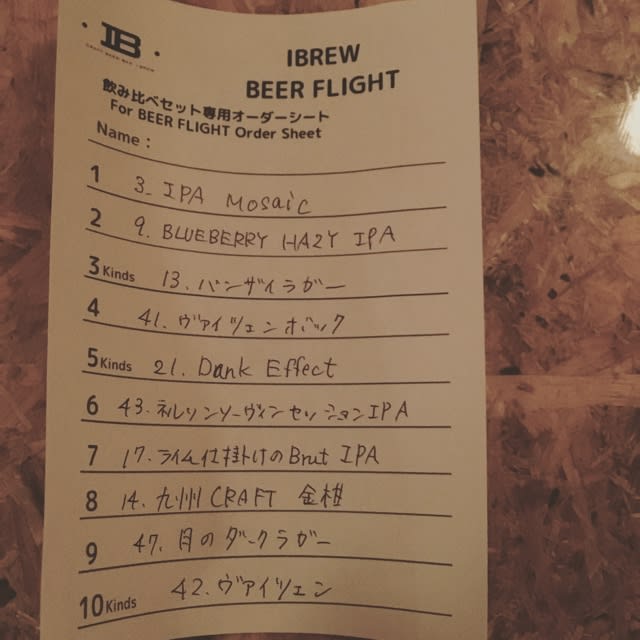 IB
CRAFT BEER BAR IBREW
IBREW
BEER FLIGHT
飲み比べセット専用オーダーシート
For BEER FLIGHT Order Sheet
Name :
1 3. IPA Mosaic
2 9. BLUEBERRY HAZY IPA
3 Kinds 13. バンザイラガー
4 41. ヴァイツェンボック
5 Kinds 21. Dank Effect
6 43. ネルソンソーヴィンセッションIPA
7 17. ライム仕掛けのBrut IPA
8 14. 九州CRAFT 金柑
9 47. 月のダークラガー
10 Kinds 42. ヴァイツェン